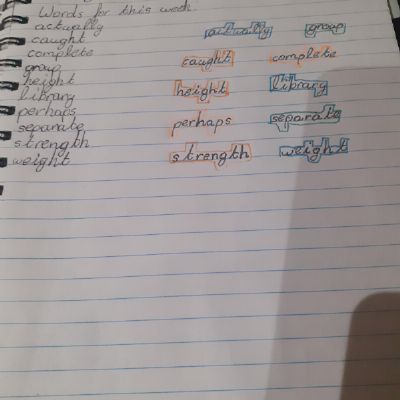 Words for this week.
actually
caught
complete
group
height
library
perhaps
separate
strength
weight
actually group
caught complete
height library
perhaps separate
strength weight